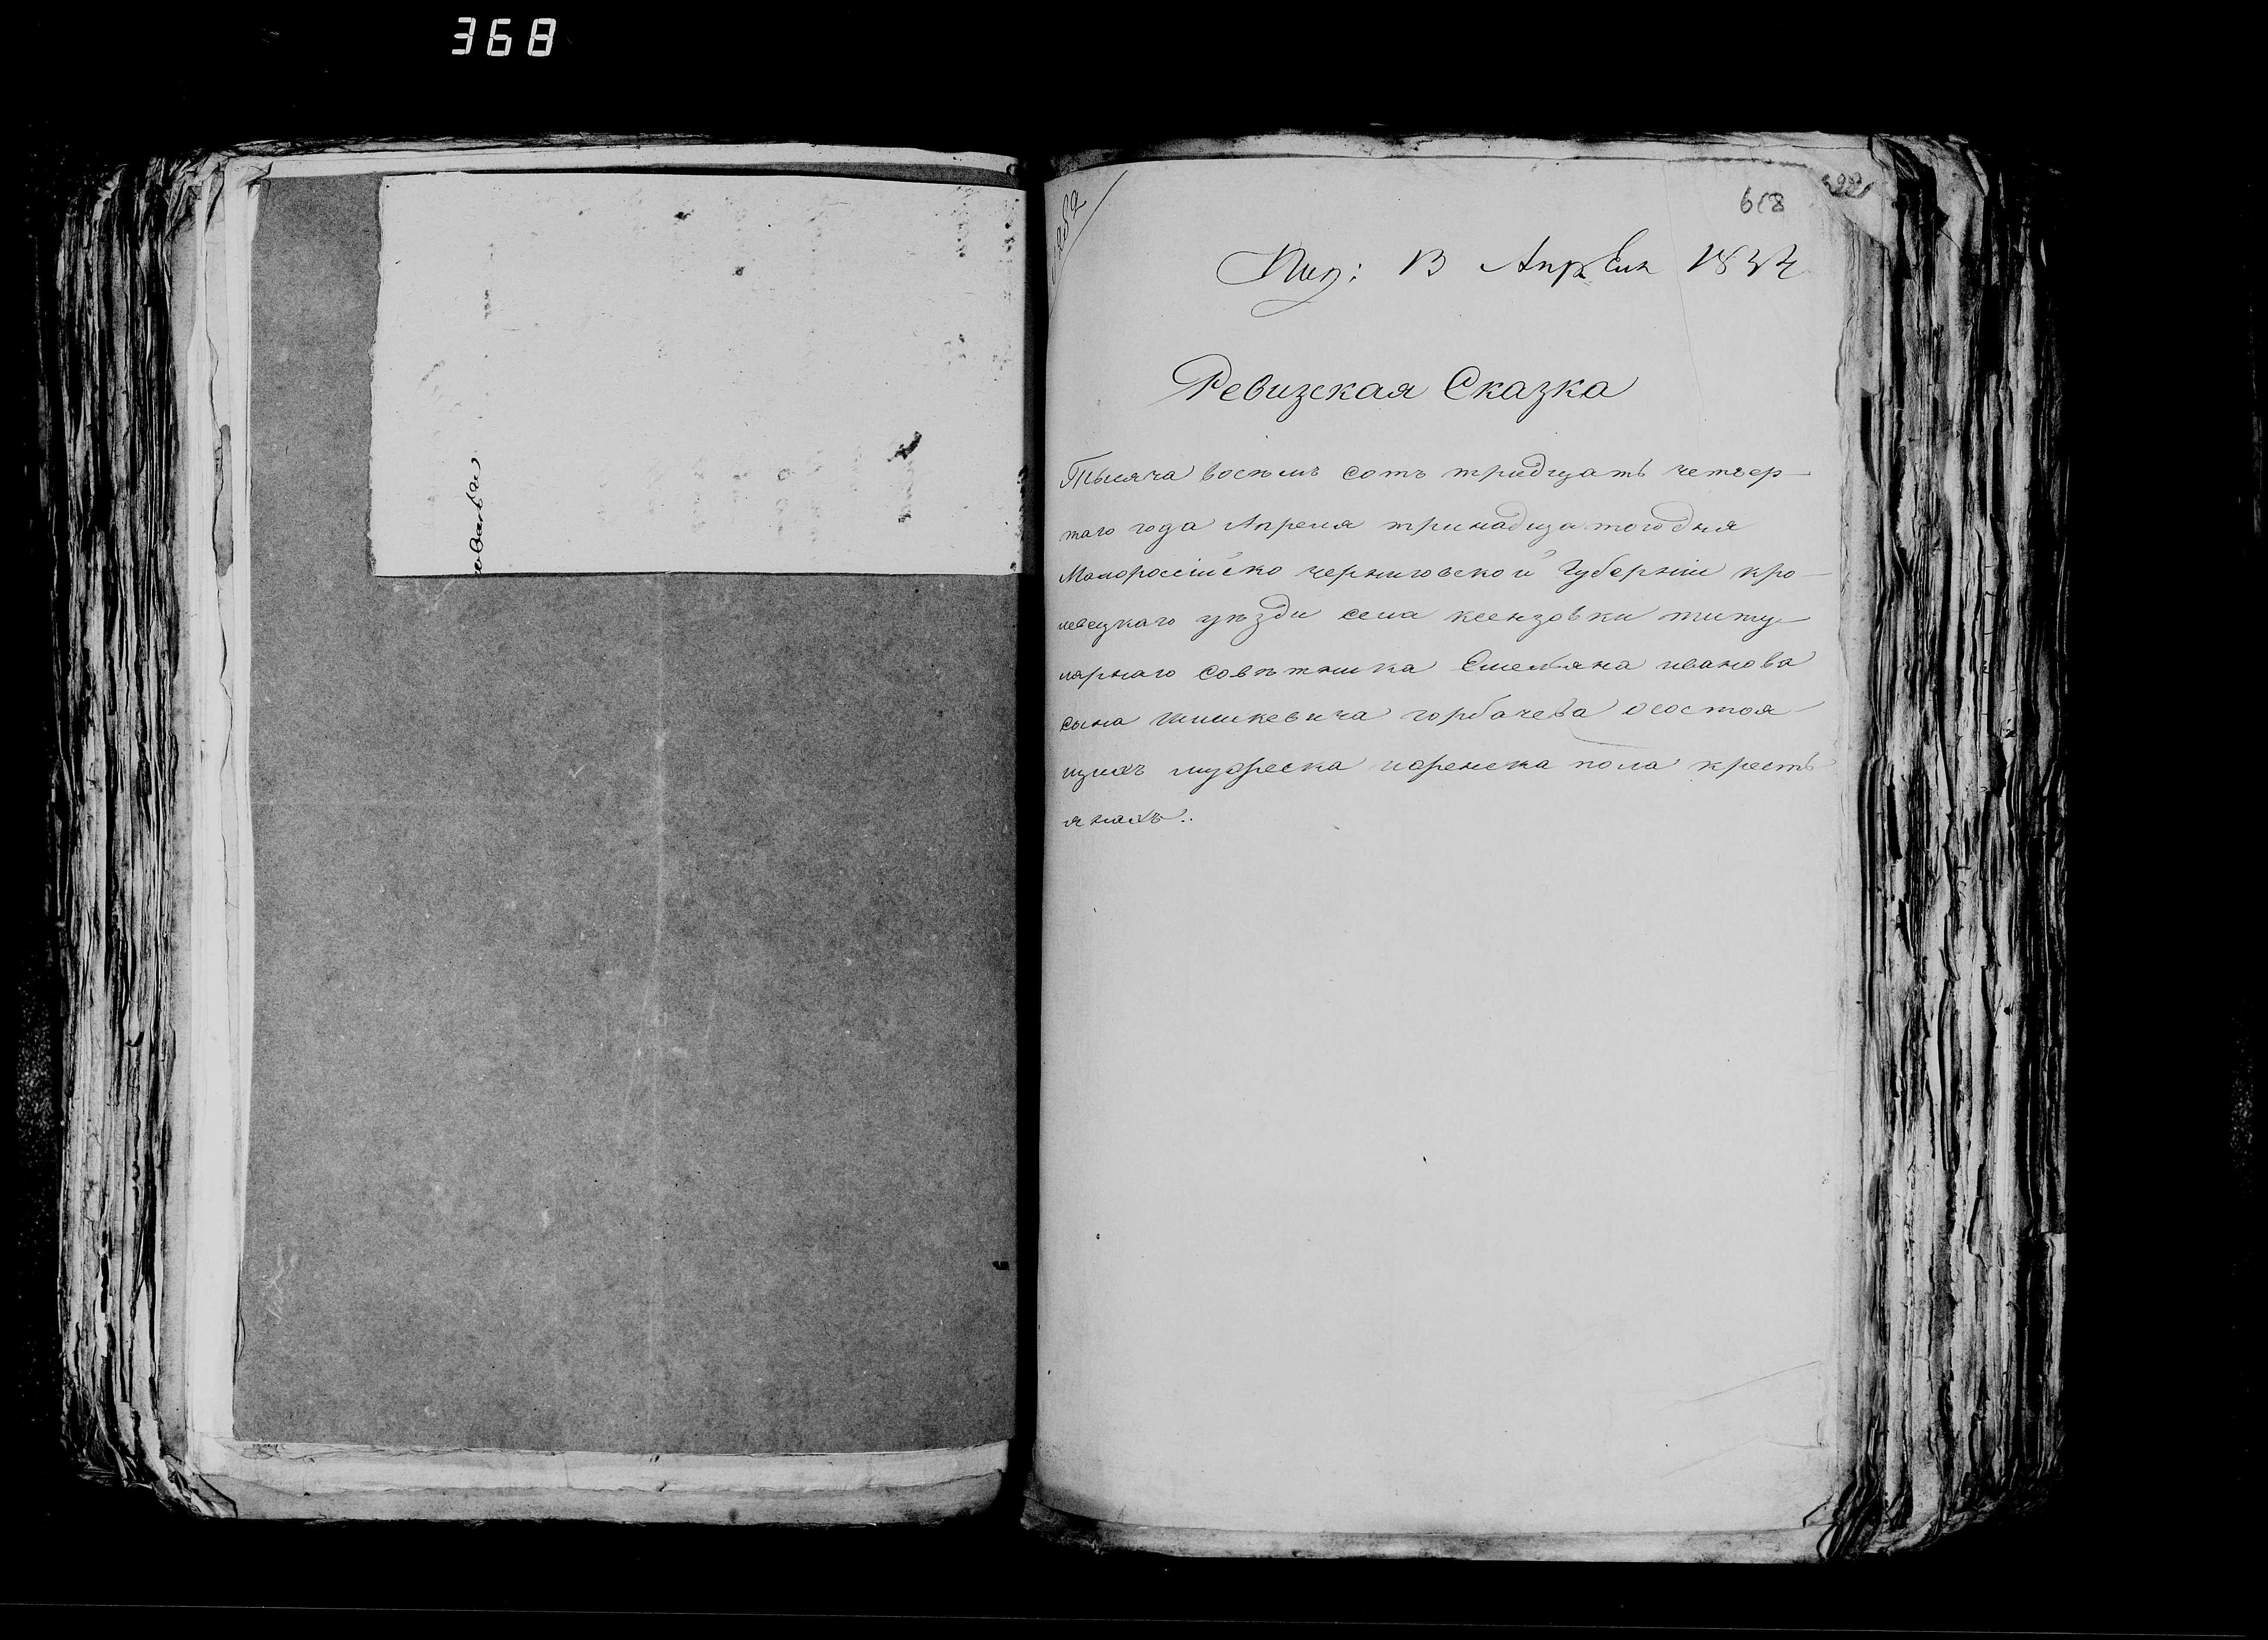 368
618
Пол: 13 Апрѣля 1834
Ревизская Сказка
Тысяча восемь сотъ тридцать четвер-
таго года Апреля тринадцатого дня
Малоросійско черниговской Губерніи кро-
левецкаго уѣзди села ксензовки титу-
лярнаго совѣтника Емельяна иванова
сына шишкевича горбачева осостоя-
щихъ мужеска иженска пола кресть
янахъ..